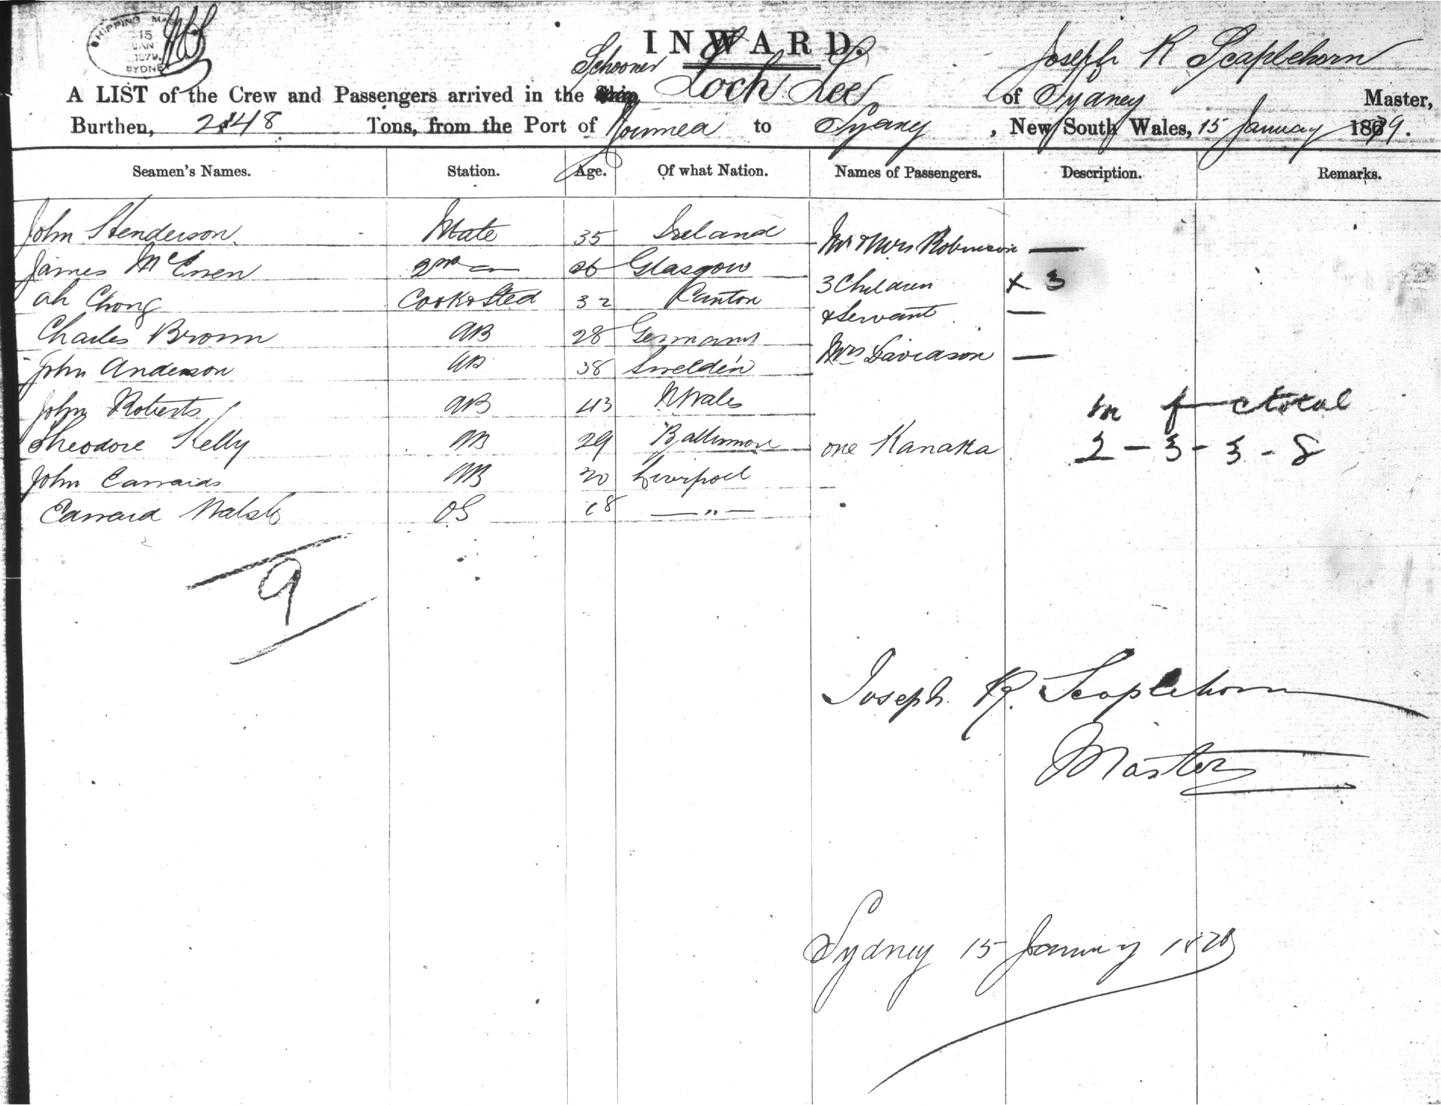 SHIPPING MAS
15
JAN
1879
SYDNEY
INWARD.
Schooner Loch Lee Joseph R Scaplehorn
A LIST of the Crew and Passengers arrived in the Ship, of Sydney Master,
Burthen, 248 Tons, from the Port of Noumea to Sydney, New South Wales, 15 January 1879.
Seamen's Names. Station. Age. Of what Nation. Names of Passengers. Description. Remarks.
John Henderson. Mate 35 Ireland Mr & Mrs Robinson —
James McEwen 2nd — 26 Glasgow 3 Children x 3
Ah Chong Cook & Sted 32 Canton & Servant —
Charles Brown AB 28 Germany Mrs Davidson —
John Anderson AB 38 Sweden
John Roberts AB 43 N Wales m f c total
Theodore Kelly AB 29 Baltimore one Kanaka 2 - 3 - 3 - 8
John AB 20 Liverpool
Edward Walsh OS 18 — " —
9
Joseph. R. Scaplehorn
Master
Sydney 15 January 1879